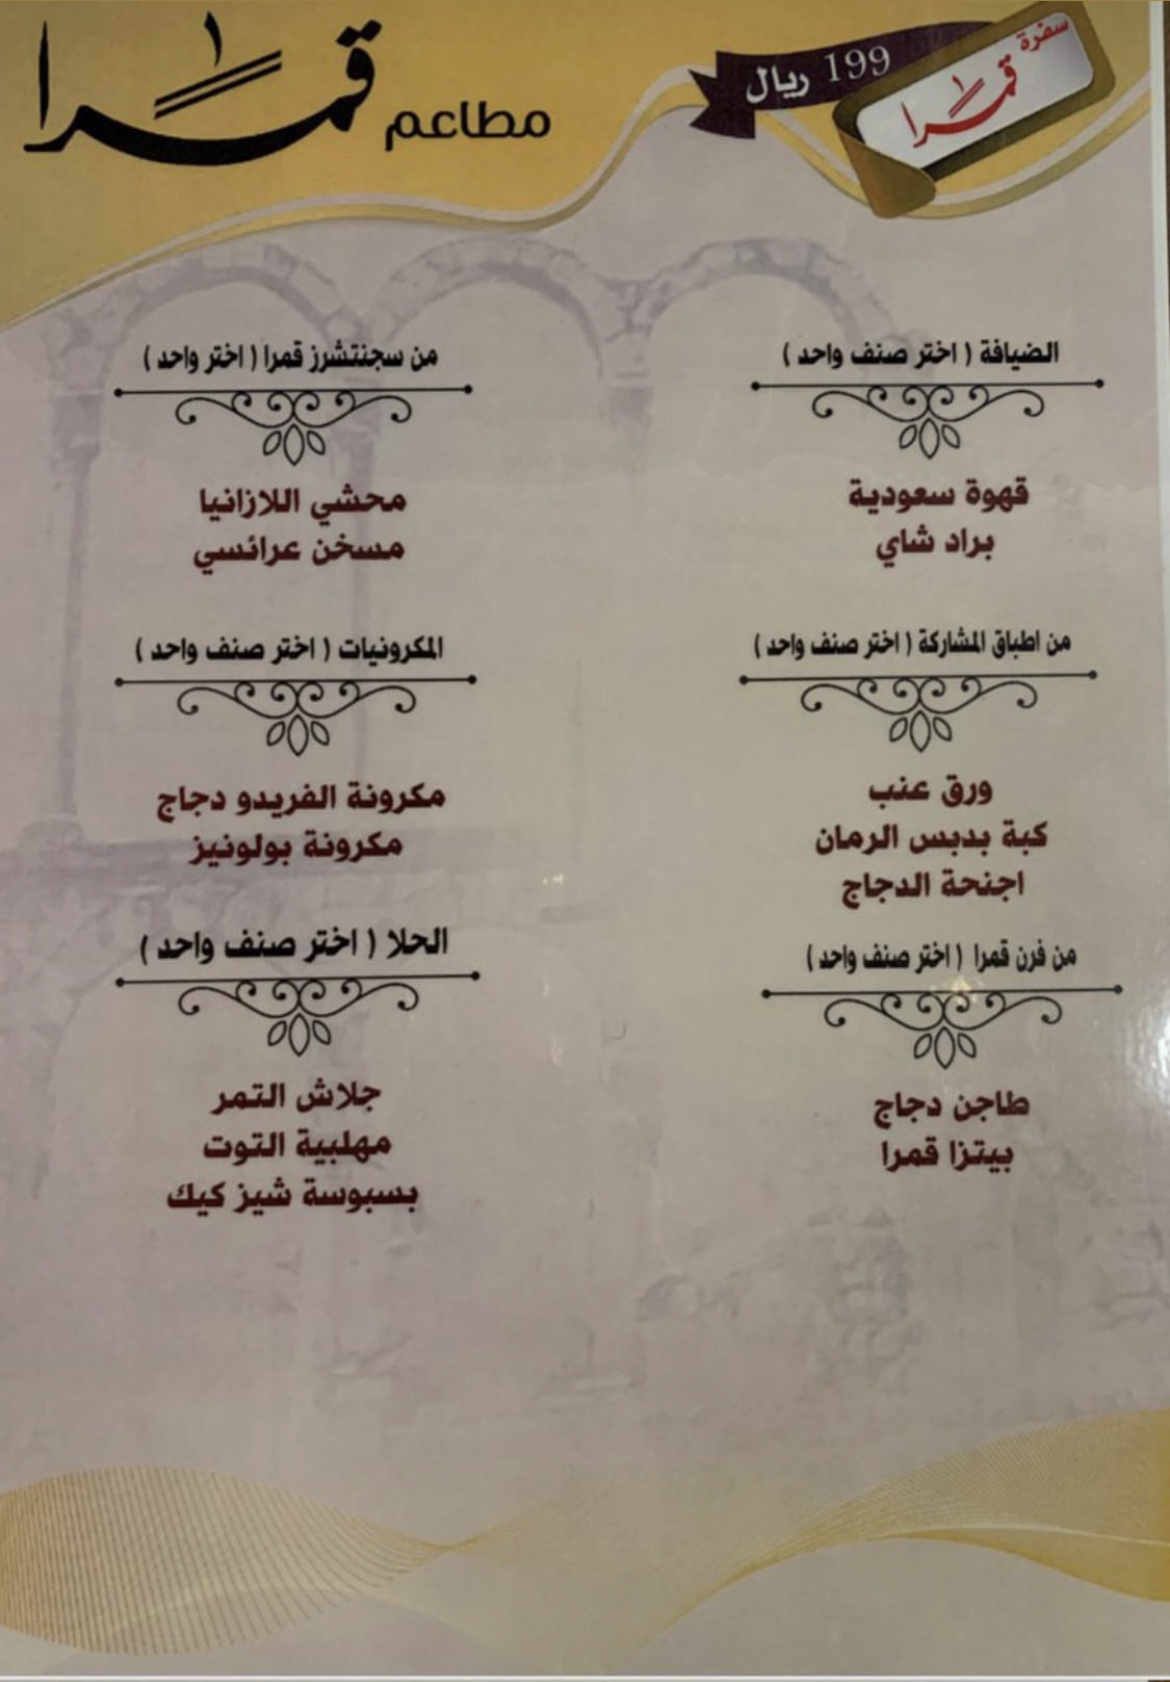 مطاعم قمرا
199 ريال
سفرة قمرا
الضيافة ( اختر صنف واحد )
قهوة سعودية
براد شاي
من سجنتشرز قمرا ( اختر واحد )
محشي اللازانيا
مسخن عرائسي
من اطباق المشاركة ( اختر صنف واحد )
ورق عنب
كبة بدبس الرمان
اجنحة الدجاج
المكرونيات ( اختر صنف واحد )
مكرونة الفريدو دجاج
مكرونة بولونيز
من فرن قمرا ( اختر صنف واحد )
طاجن دجاج
بيتزا قمرا
الحلا ( اختر صنف واحد )
جلاش التمر
مهلبية التوت
بسبوسة شيز كيك